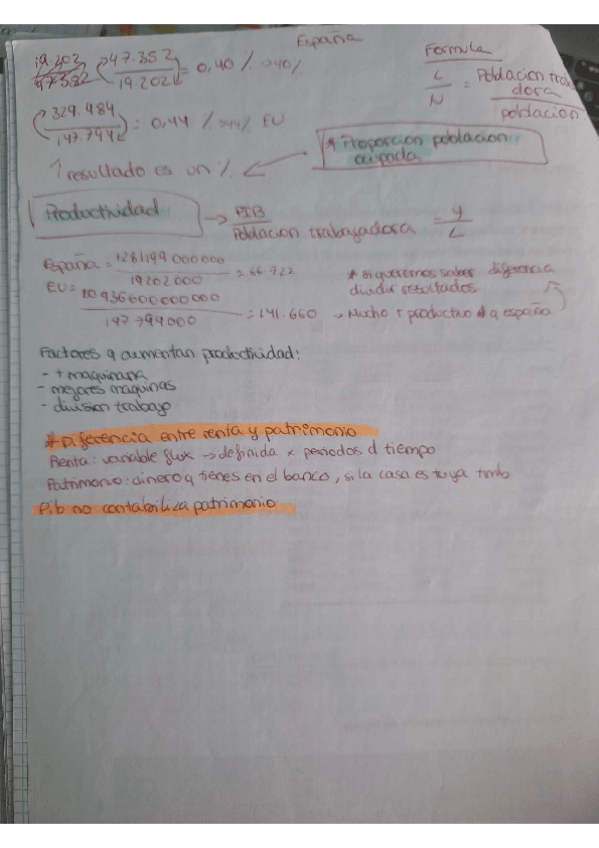 España
Formula
19.202
47352
47.352
19.202L = 0,40 % → 40%
L
N = Poblacion traba
dora
poblacion
329.484
147.794L = 0,44 % → 44% EU
* Proporcion poblacion
ocupada
1 resultado es un %
Productividad → PIB
Poblacion trabajadora = Y
L
España = 1281199 000000
19202000 = 66.722
EU = 20936600000000
147 799000 = 141.660 → Mucho + productivo q españa
* si queremos saber diferencia
dividir resultados
Factores q aumentan productividad:
- + maquinaria
- mejores maquinas
- division trabajo
* Diferencia entre renta y patrimonio
Renta: variable flux → definida x periodos d tiempo
Patrimonio: dinero q tienes en el banco, si la casa es tuya tmb
Pib no contabiliza patrimonio